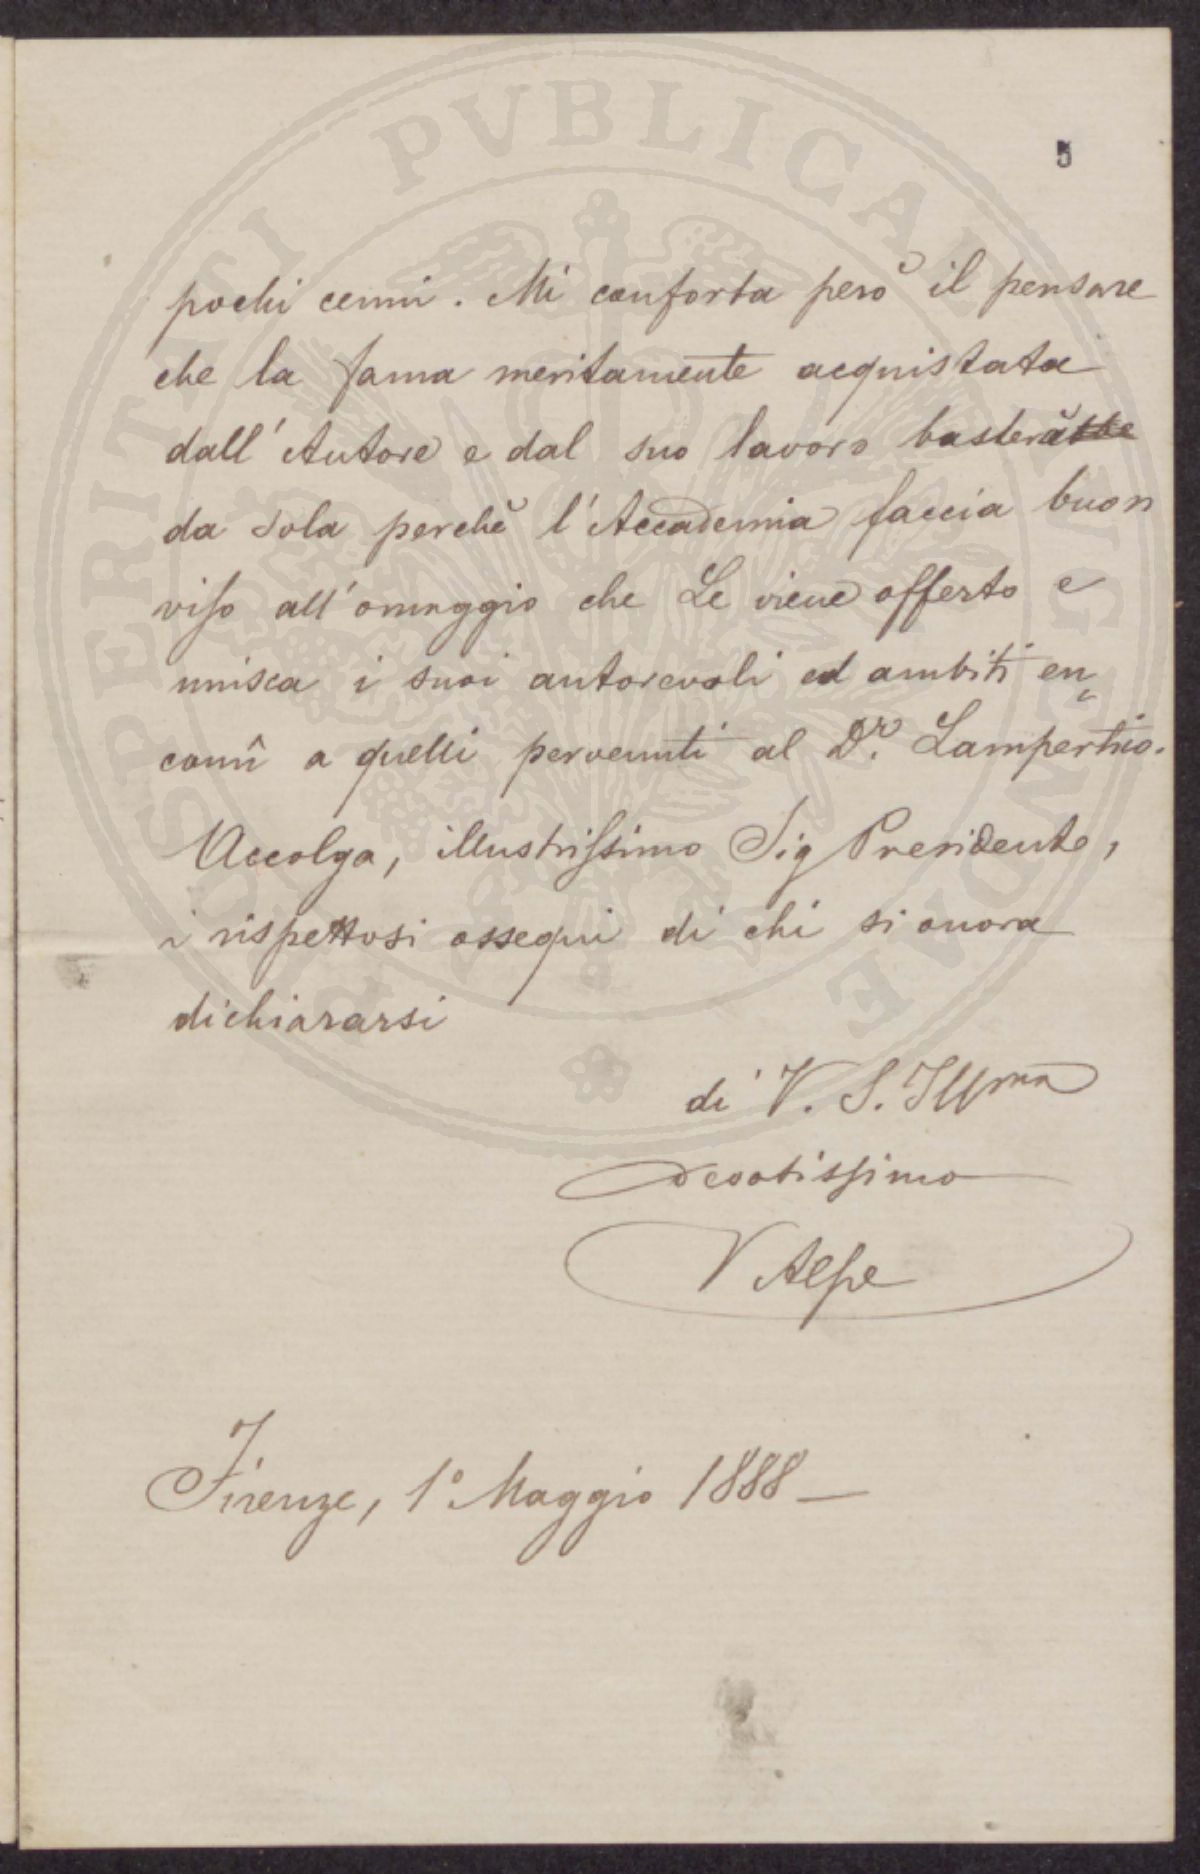 PROSPERITATI PVBLICAE AVGENDAE
5
pochi cenni. Mi conforta però il pensare
che la fama meritamente acquistata
dall'Autore e dal suo lavoro basterà
da sola perchè l'Accademia faccia buon
viso all'omaggio che Le viene offerto e
unisca i suoi autorevoli ed ambiti en„
comî a quelli pervenuti al D.r
Accolga, illustrissimo Sig Presidente,
i rispettosi ossequi di chi si onora
dichiararsi
di V. S. Illma
devotissimo
V Alpe
Firenze, 1° Maggio 1888 —